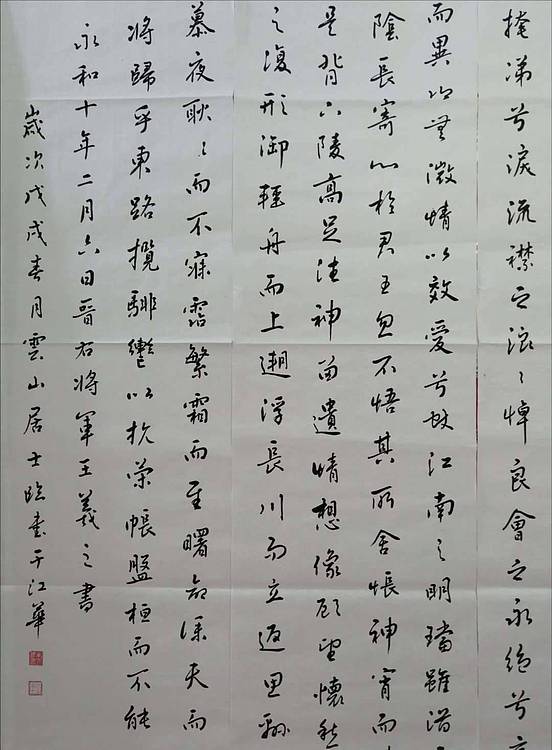 掩涕兮淚流襟之浪〻悼良會之永絕兮
而異鄉無微情以效愛兮獻江南之明璫雖潛
陰長寄心於君王忽不悟其所舍悵神宵而
是背下陵高足往神留遺情想像顧望懷愁
之復形御輕舟而上遡浮長川而忘返思緜
慕夜耿〻而不寐霑繁霜而至曙命僕夫而
將歸乎東路攬騑轡以抗策悵盤桓而不能
永和十年二月六日晉右將軍王羲之書
歲次戊戌春月雲山居士臨書于江華